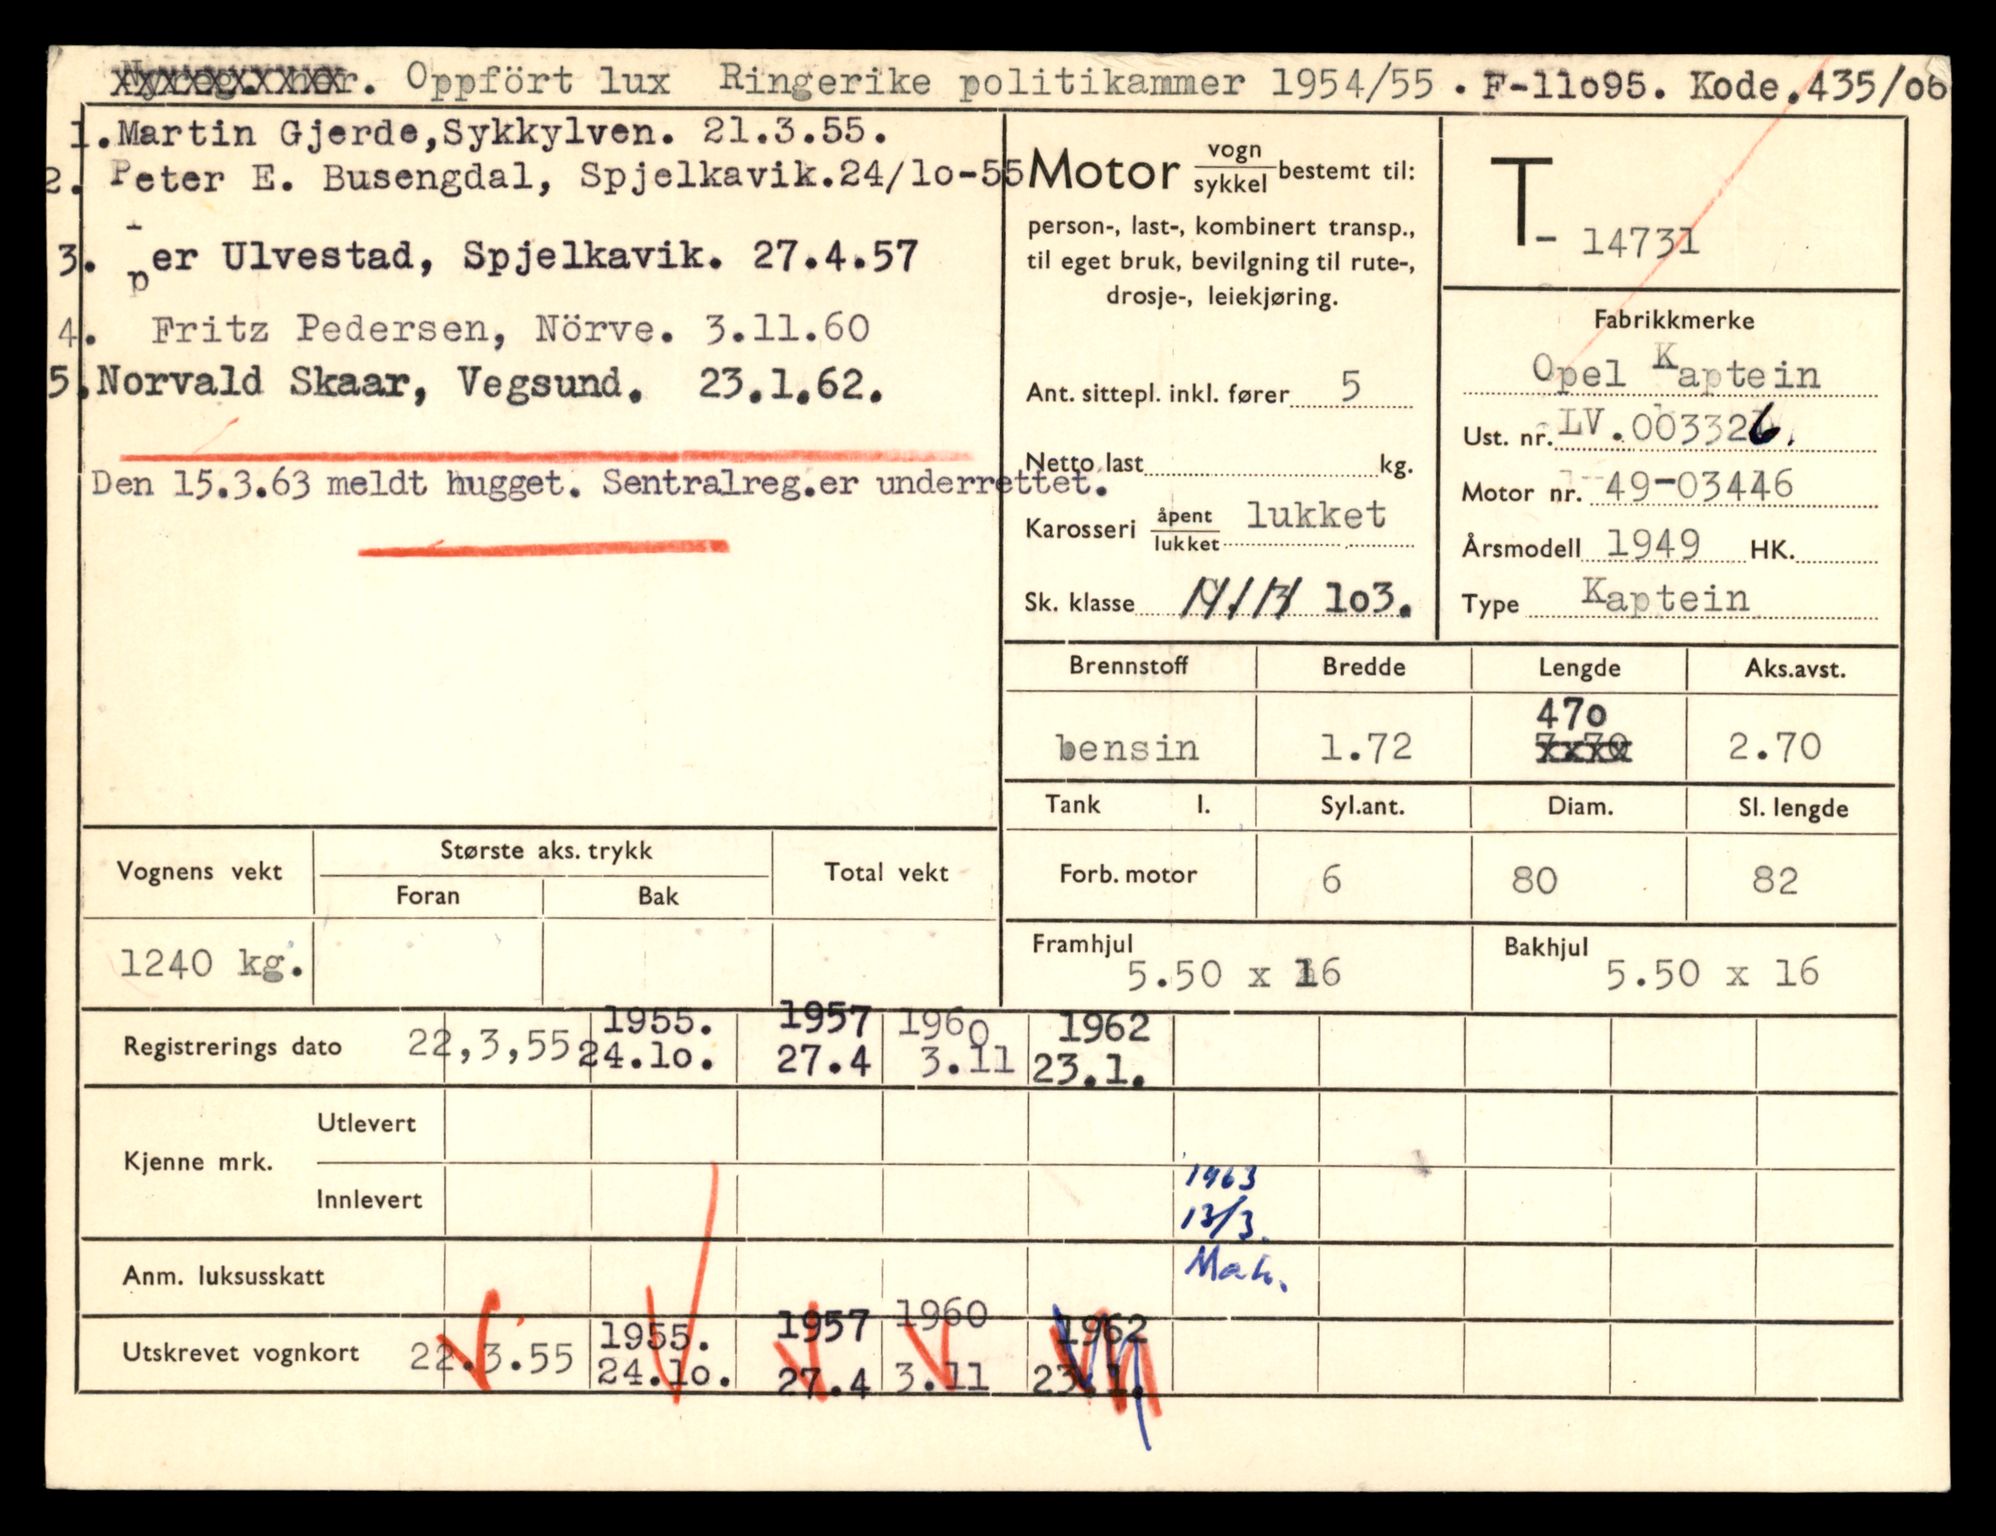 Oppfört lux Ringerike politikammer 1954/55 . F-11o95. Kode.435/06
1.Martin Gjerde,Sykkylven. 21.3.55.
2. Peter E. Busengdal, Spjelkavik.24/1o-55
3. per Ulvestad, Spjelkavik. 27.4.57
4. Fritz Pedersen, Nörve. 3.11.60
5.Norvald Skaar, Vegsund. 23.1.62.
Den 15.3.63 meldt hugget. Sentralreg.er underrettet.
Motor vogn/sykkel bestemt til:
person-, last-, kombinert transp.,
til eget bruk, bevilgning til rute-,
drosje-, leiekjøring.
Ant. sittepl. inkl. fører 5
Netto last kg.
Karosseri åpent/lukket lukket
Sk. klasse 1o3.
T- 14731
Fabrikkmerke
Opel Kaptein
Ust. nr. LV.003326.
Motor nr. 49-03446
Årsmodell 1949 HK.
Type Kaptein
Brennstoff Bredde Lengde Aks.avst.
470
bensin 1.72 2.70
Tank l. Syl.ant. Diam. Sl. lengde
Forb. motor 6 80 82
Framhjul Bakhjul
5.50 x 16 5.50 x 16
Vognens vekt Største aks. trykk Total vekt
Foran Bak
1240 kg.
1955. 1957 1960 1962
Registrerings dato 22,3,55 24.1o. 27.4 3.11 23.1.
Kjenne mrk. Utlevert
Innlevert
1963
13/3.
Mak.
Anm. luksusskatt
1955. 1957 1960 1962
Utskrevet vognkort 22.3.55 24.1o. 27.4 3.11 23.1.